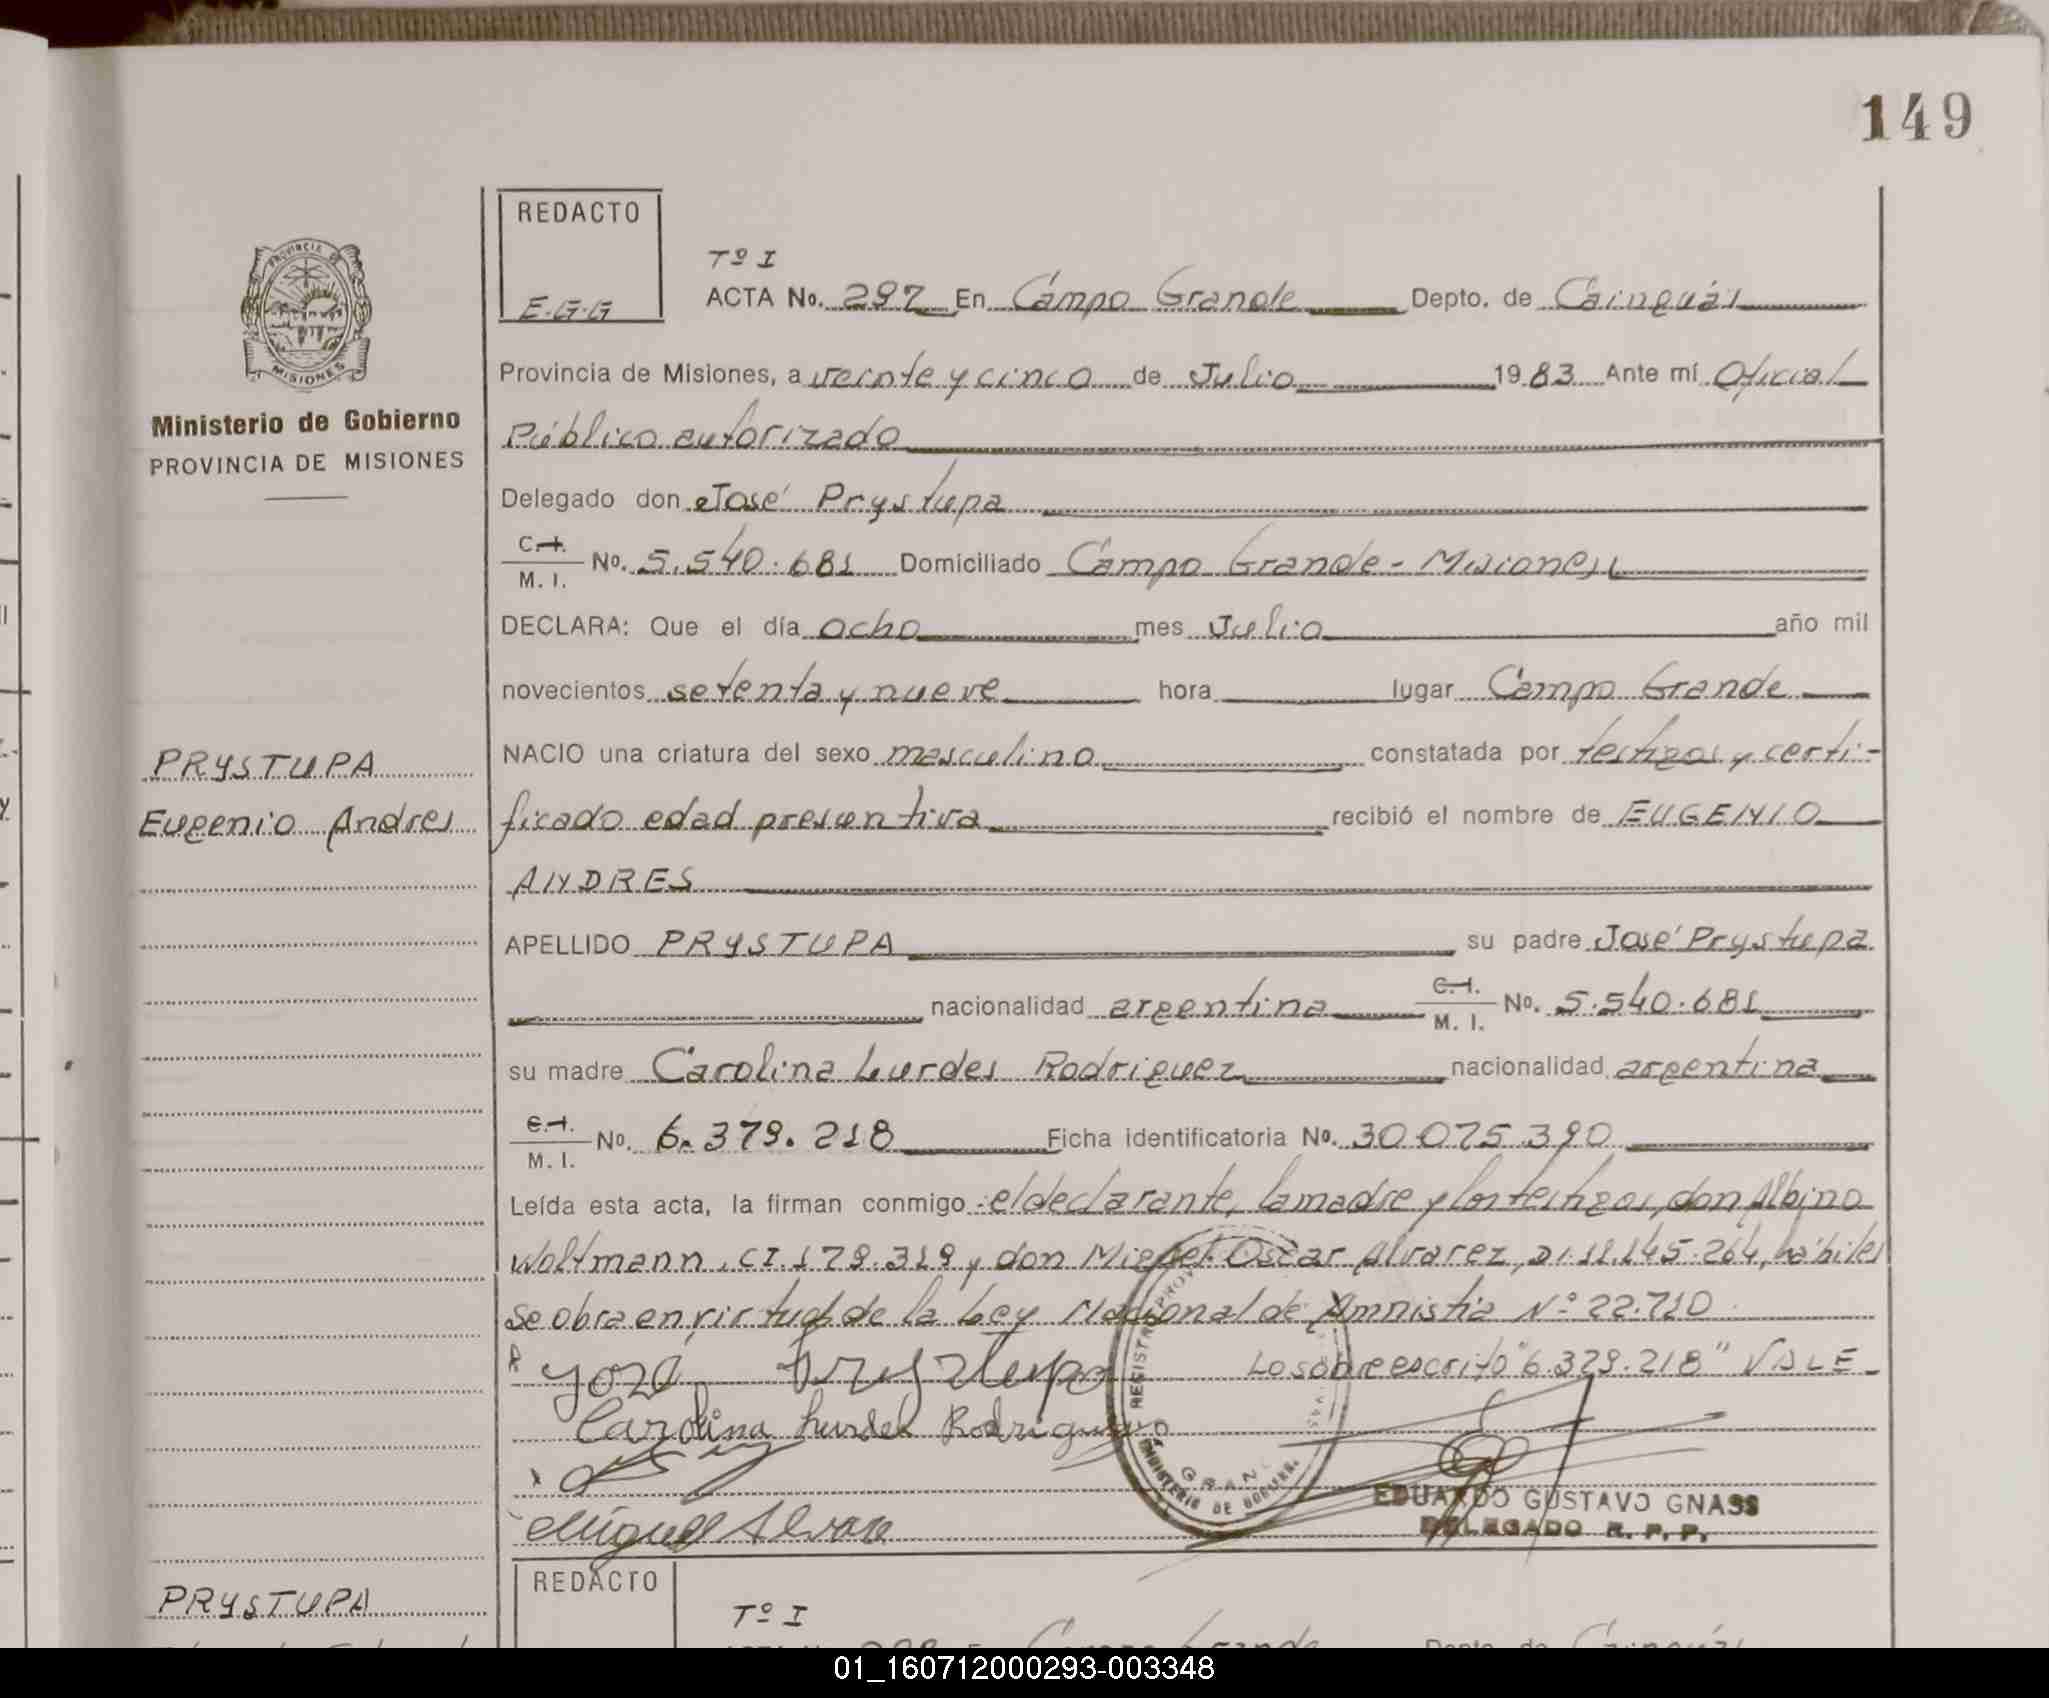 149
REDACTO
Tº I
E.G.G
ACTA No. 297 En Campo Grande Depto. de Cainguás
PROVINCIA DE
MISIONES
Provincia de Misiones, a veinte y cinco de Julio 1983 Ante mí Oficial
Ministerio de Gobierno
PROVINCIA DE MISIONES
Público autorizado
Delegado don José Prystupa
C.I. M. I. No. 5.540.681 Domiciliado Campo Grande - Misiones
DECLARA: Que el día ocho mes Julio año mil
novecientos setenta y nueve hora lugar Campo Grande
PRYSTUPA
NACIO una criatura del sexo masculino constatada por testigos y certi-
Eugenio Andres
ficado edad presuntiva recibió el nombre de EUGENIO
ANDRES
APELLIDO PRYSTUPA su padre José Prystupa
nacionalidad argentina C.I. M. I. No. 5.540.681
su madre Carolina Lurdes Rodriguez nacionalidad argentina
C.I. M. I. No. 6.379.218 Ficha identificatoria No. 30.075.390
Leída esta acta, la firman conmigo :el declarante, la madre y los testigos, don Albino
Woltmann, CI.179.319 y don Miguel Oscar Alvarez, DI.11.145.264, hábiles
se obra en virtud de la Ley Nacional de Amnistia Nº 22.710
José Prystupa Lo sobreescrito "6.379.218" VALE
Carolina Lurdes Rodriguez
Miguel Alvarez
REGISTRO PROV
GRAN
MINISTERIO DE GOBIERNO
EDUARDO GUSTAVO GNASS
DELEGADO R. P. P.
REDACTO
PRYSTUPA
Tº I
01_160712000293-003348